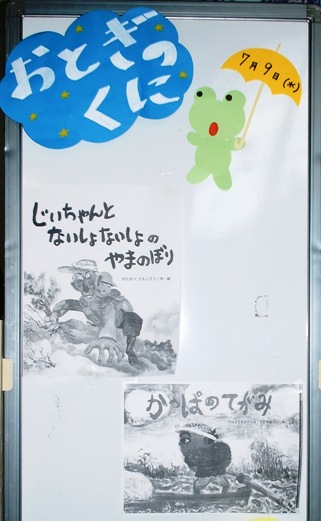 おとぎっ
くに
7月9日(水)
じいちゃんと
ないしょないしょの
やまのぼり
かっぱのてがみ